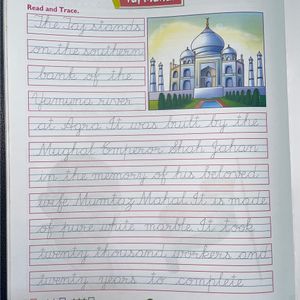 Taj Mahal
Read and Trace.
The Taj stands
on the southern
bank of the
Yamuna river
at Agra It was built by the
Mughal Emperor Shah Jahan
in the memory of his beloved
wife Mumtaz Mahal.It is made
of pure white marble.It took
twenty thousand workers and
twenty years to complete